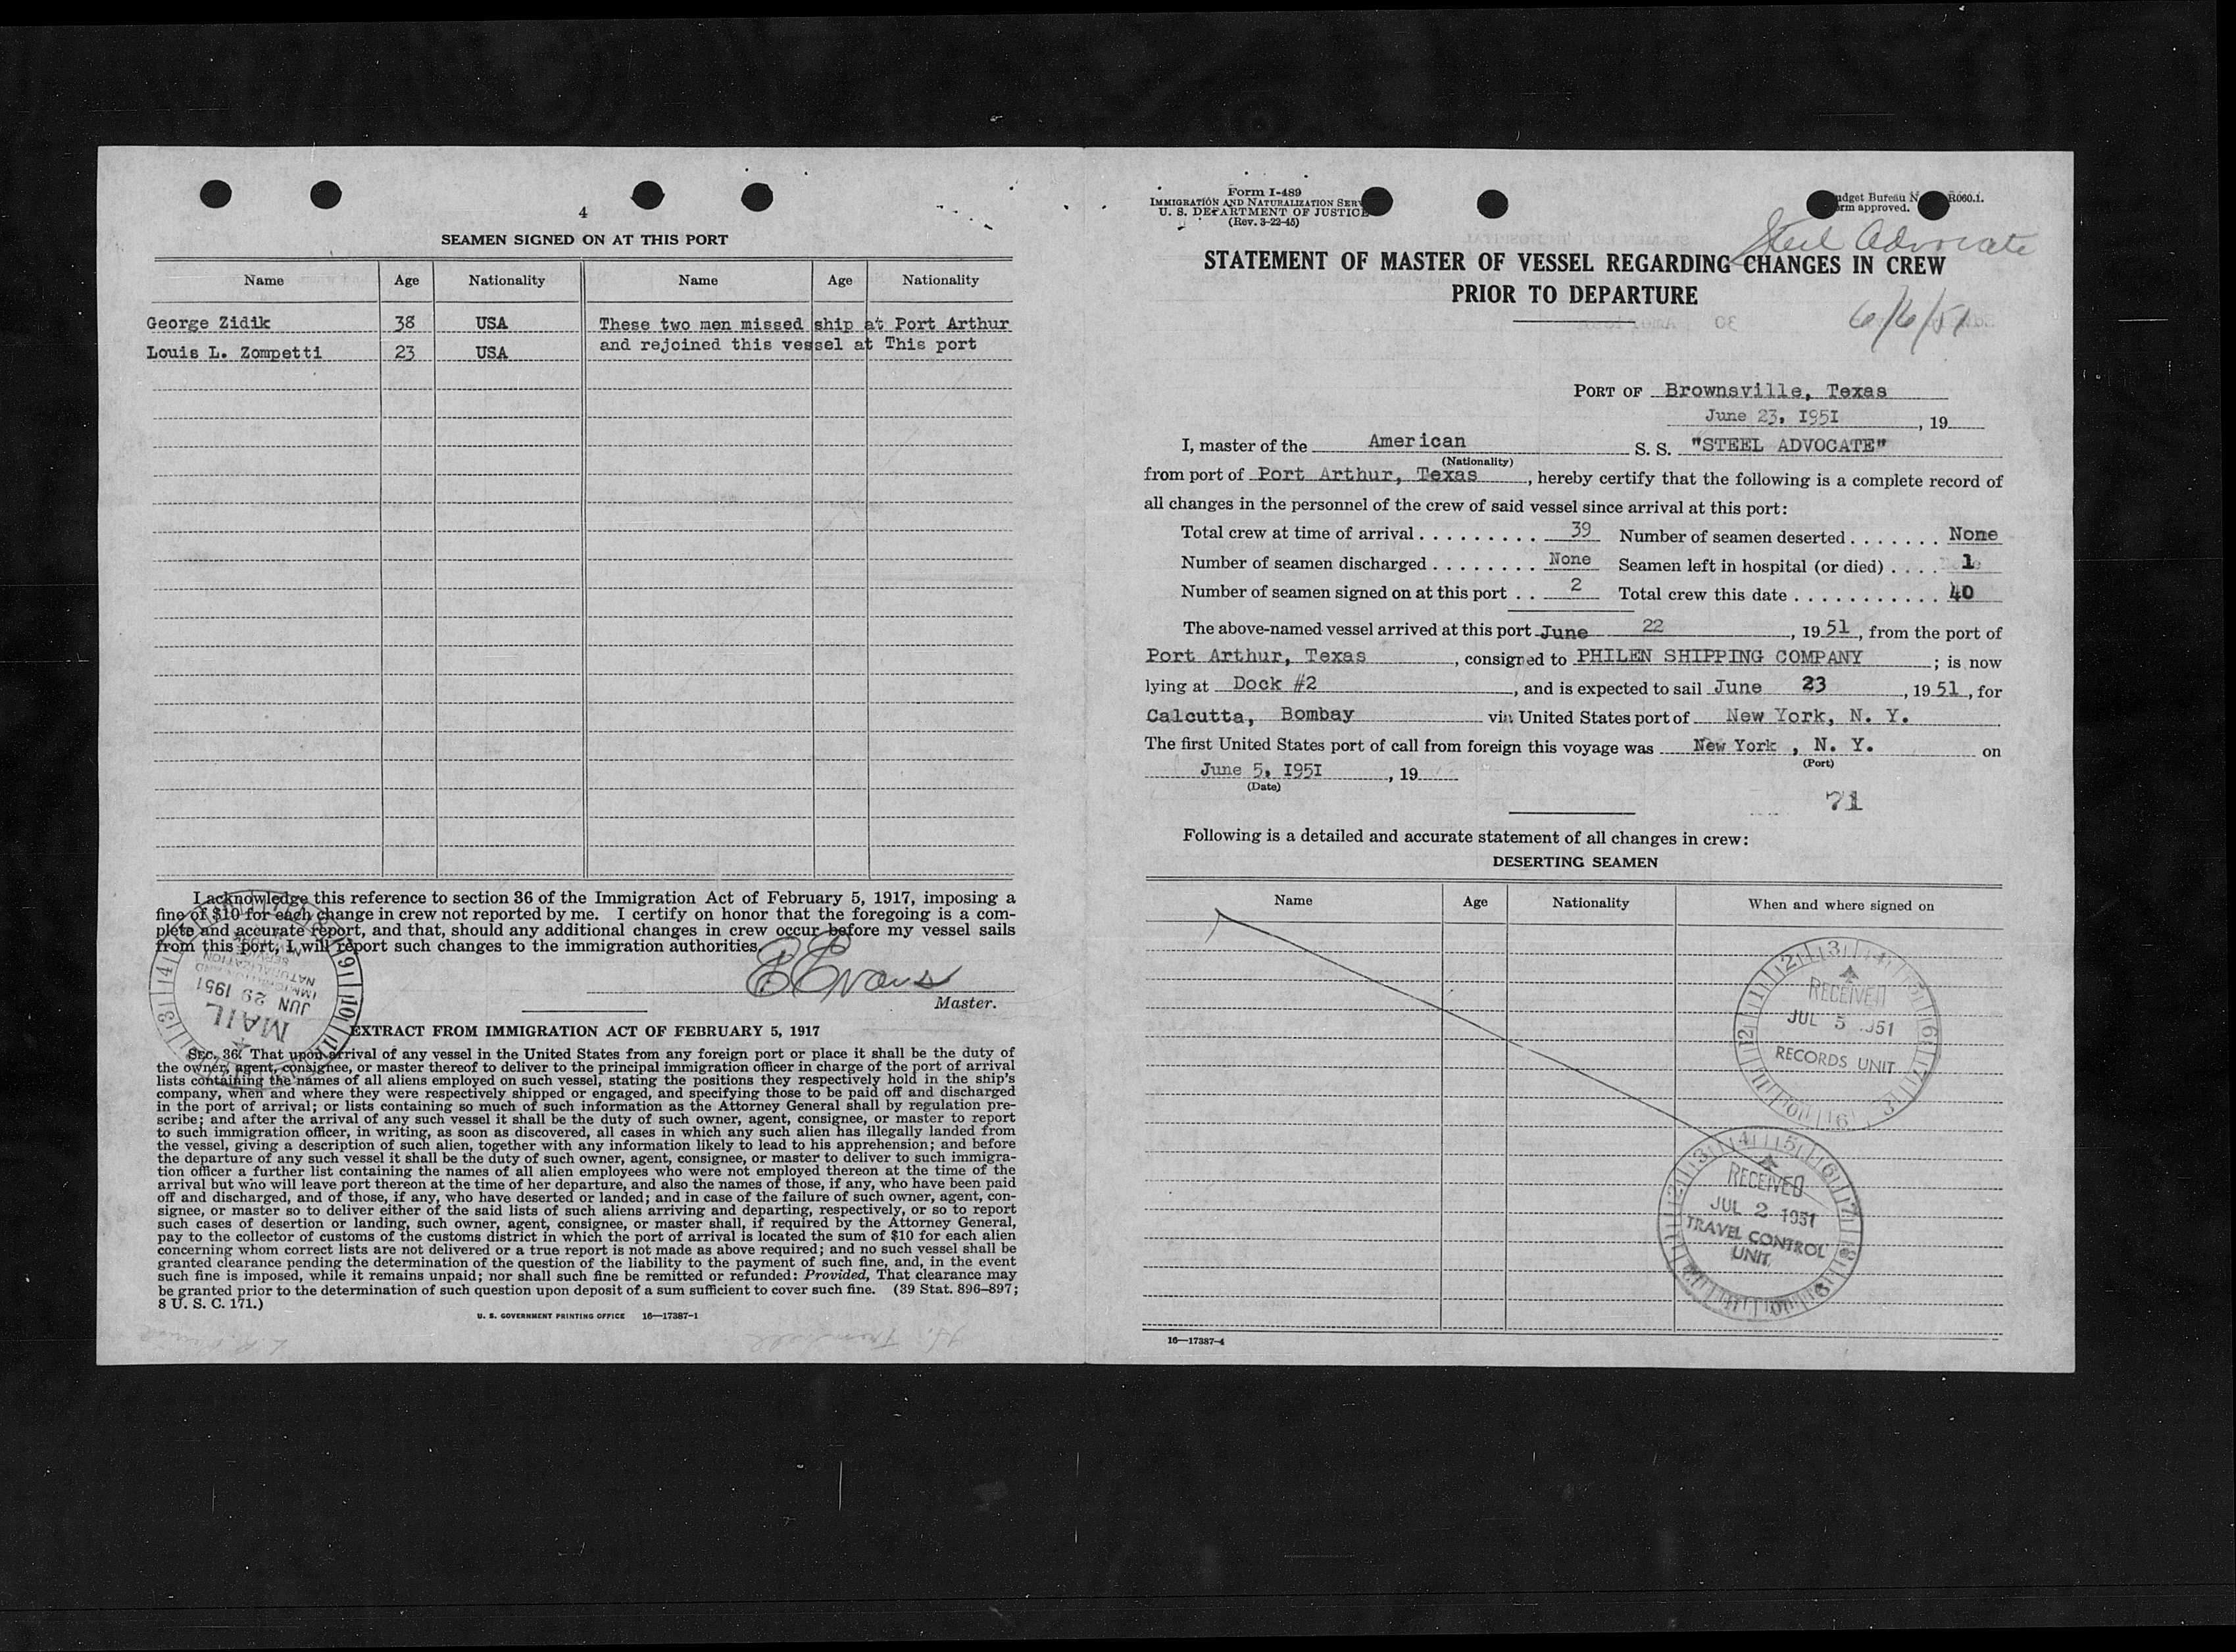 4
SEAMEN SIGNED ON AT THIS PORT
Name Age Nationality Name Age Nationality
George Zidik 38 USA These two men missed ship at Port Arthur
and rejoined this vessel at This port
Louis L. Zompetti 23 USA
I acknowledge this reference to section 36 of the Immigration Act of February 5, 1917, imposing a
fine of $10 for each change in crew not reported by me. I certify on honor that the foregoing is a com-
plete and accurate report, and that, should any additional changes in crew occur before my vessel sails
from this port, I will report such changes to the immigration authorities.
E Evans
Master.
MAIL
JUN 29 1951
IMMIGRATION AND
NATURALIZATION
SERVICE
EXTRACT FROM IMMIGRATION ACT OF FEBRUARY 5, 1917
SEC. 36. That upon arrival of any vessel in the United States from any foreign port or place it shall be the duty of
the owner, agent, consignee, or master thereof to deliver to the principal immigration officer in charge of the port of arrival
lists containing the names of all aliens employed on such vessel, stating the positions they respectively hold in the ship's
company, when and where they were respectively shipped or engaged, and specifying those to be paid off and discharged
in the port of arrival; or lists containing so much of such information as the Attorney General shall by regulation pre-
scribe; and after the arrival of any such vessel it shall be the duty of such owner, agent, consignee, or master to report
to such immigration officer, in writing, as soon as discovered, all cases in which any such alien has illegally landed from
the vessel, giving a description of such alien, together with any information likely to lead to his apprehension; and before
the departure of any such vessel it shall be the duty of such owner, agent, consignee, or master to deliver to such immigra-
tion officer a further list containing the names of all alien employees who were not employed thereon at the time of the
arrival but who will leave port thereon at the time of her departure, and also the names of those, if any, who have been paid
off and discharged, and of those, if any, who have deserted or landed; and in case of the failure of such owner, agent, con-
signee, or master so to deliver either of the said lists of such aliens arriving and departing, respectively, or so to report
such cases of desertion or landing, such owner, agent, consignee, or master shall, if required by the Attorney General,
pay to the collector of customs of the customs district in which the port of arrival is located the sum of $10 for each alien
concerning whom correct lists are not delivered or a true report is not made as above required; and no such vessel shall be
granted clearance pending the determination of the question of the liability to the payment of such fine, and, in the event
such fine is imposed, while it remains unpaid; nor shall such fine be remitted or refunded: Provided, That clearance may
be granted prior to the determination of such question upon deposit of a sum sufficient to cover such fine. (39 Stat. 896-897;
8 U. S. C. 171.)
U. S. GOVERNMENT PRINTING OFFICE 16—17387-1
Form I-489
IMMIGRATION AND NATURALIZATION SERV
U. S. DEPARTMENT OF JUSTICE
(Rev. 3-22-45)
udget Bureau N R060.1.
rm approved.
Steel Advocate
STATEMENT OF MASTER OF VESSEL REGARDING CHANGES IN CREW
PRIOR TO DEPARTURE
6/6/51
PORT OF Brownsville, Texas
June 23, 1951 , 19
I, master of the American S. S. "STEEL ADVOCATE"
(Nationality)
from port of Port Arthur, Texas , hereby certify that the following is a complete record of
all changes in the personnel of the crew of said vessel since arrival at this port:
Total crew at time of arrival . . . . . . . . . 39 Number of seamen deserted . . . . . . . None
Number of seamen discharged . . . . . . . . None Seamen left in hospital (or died) . . . . 1
Number of seamen signed on at this port . . 2 Total crew this date . . . . . . . . . . . 40
The above-named vessel arrived at this port June 22 , 19 51 , from the port of
Port Arthur, Texas , consigned to PHILEN SHIPPING COMPANY ; is now
lying at Dock #2 , and is expected to sail June 23 , 19 51 , for
Calcutta, Bombay via United States port of New York, N. Y.
The first United States port of call from foreign this voyage was New York , N. Y. on
(Port)
June 5, 1951 , 19
(Date)
71
Following is a detailed and accurate statement of all changes in crew:
DESERTING SEAMEN
Name Age Nationality When and where signed on
RECEIVED
JUL 5 1951
RECORDS UNIT
RECEIVED
JUL 2 1951
TRAVEL CONTROL
UNIT
16—17387-4